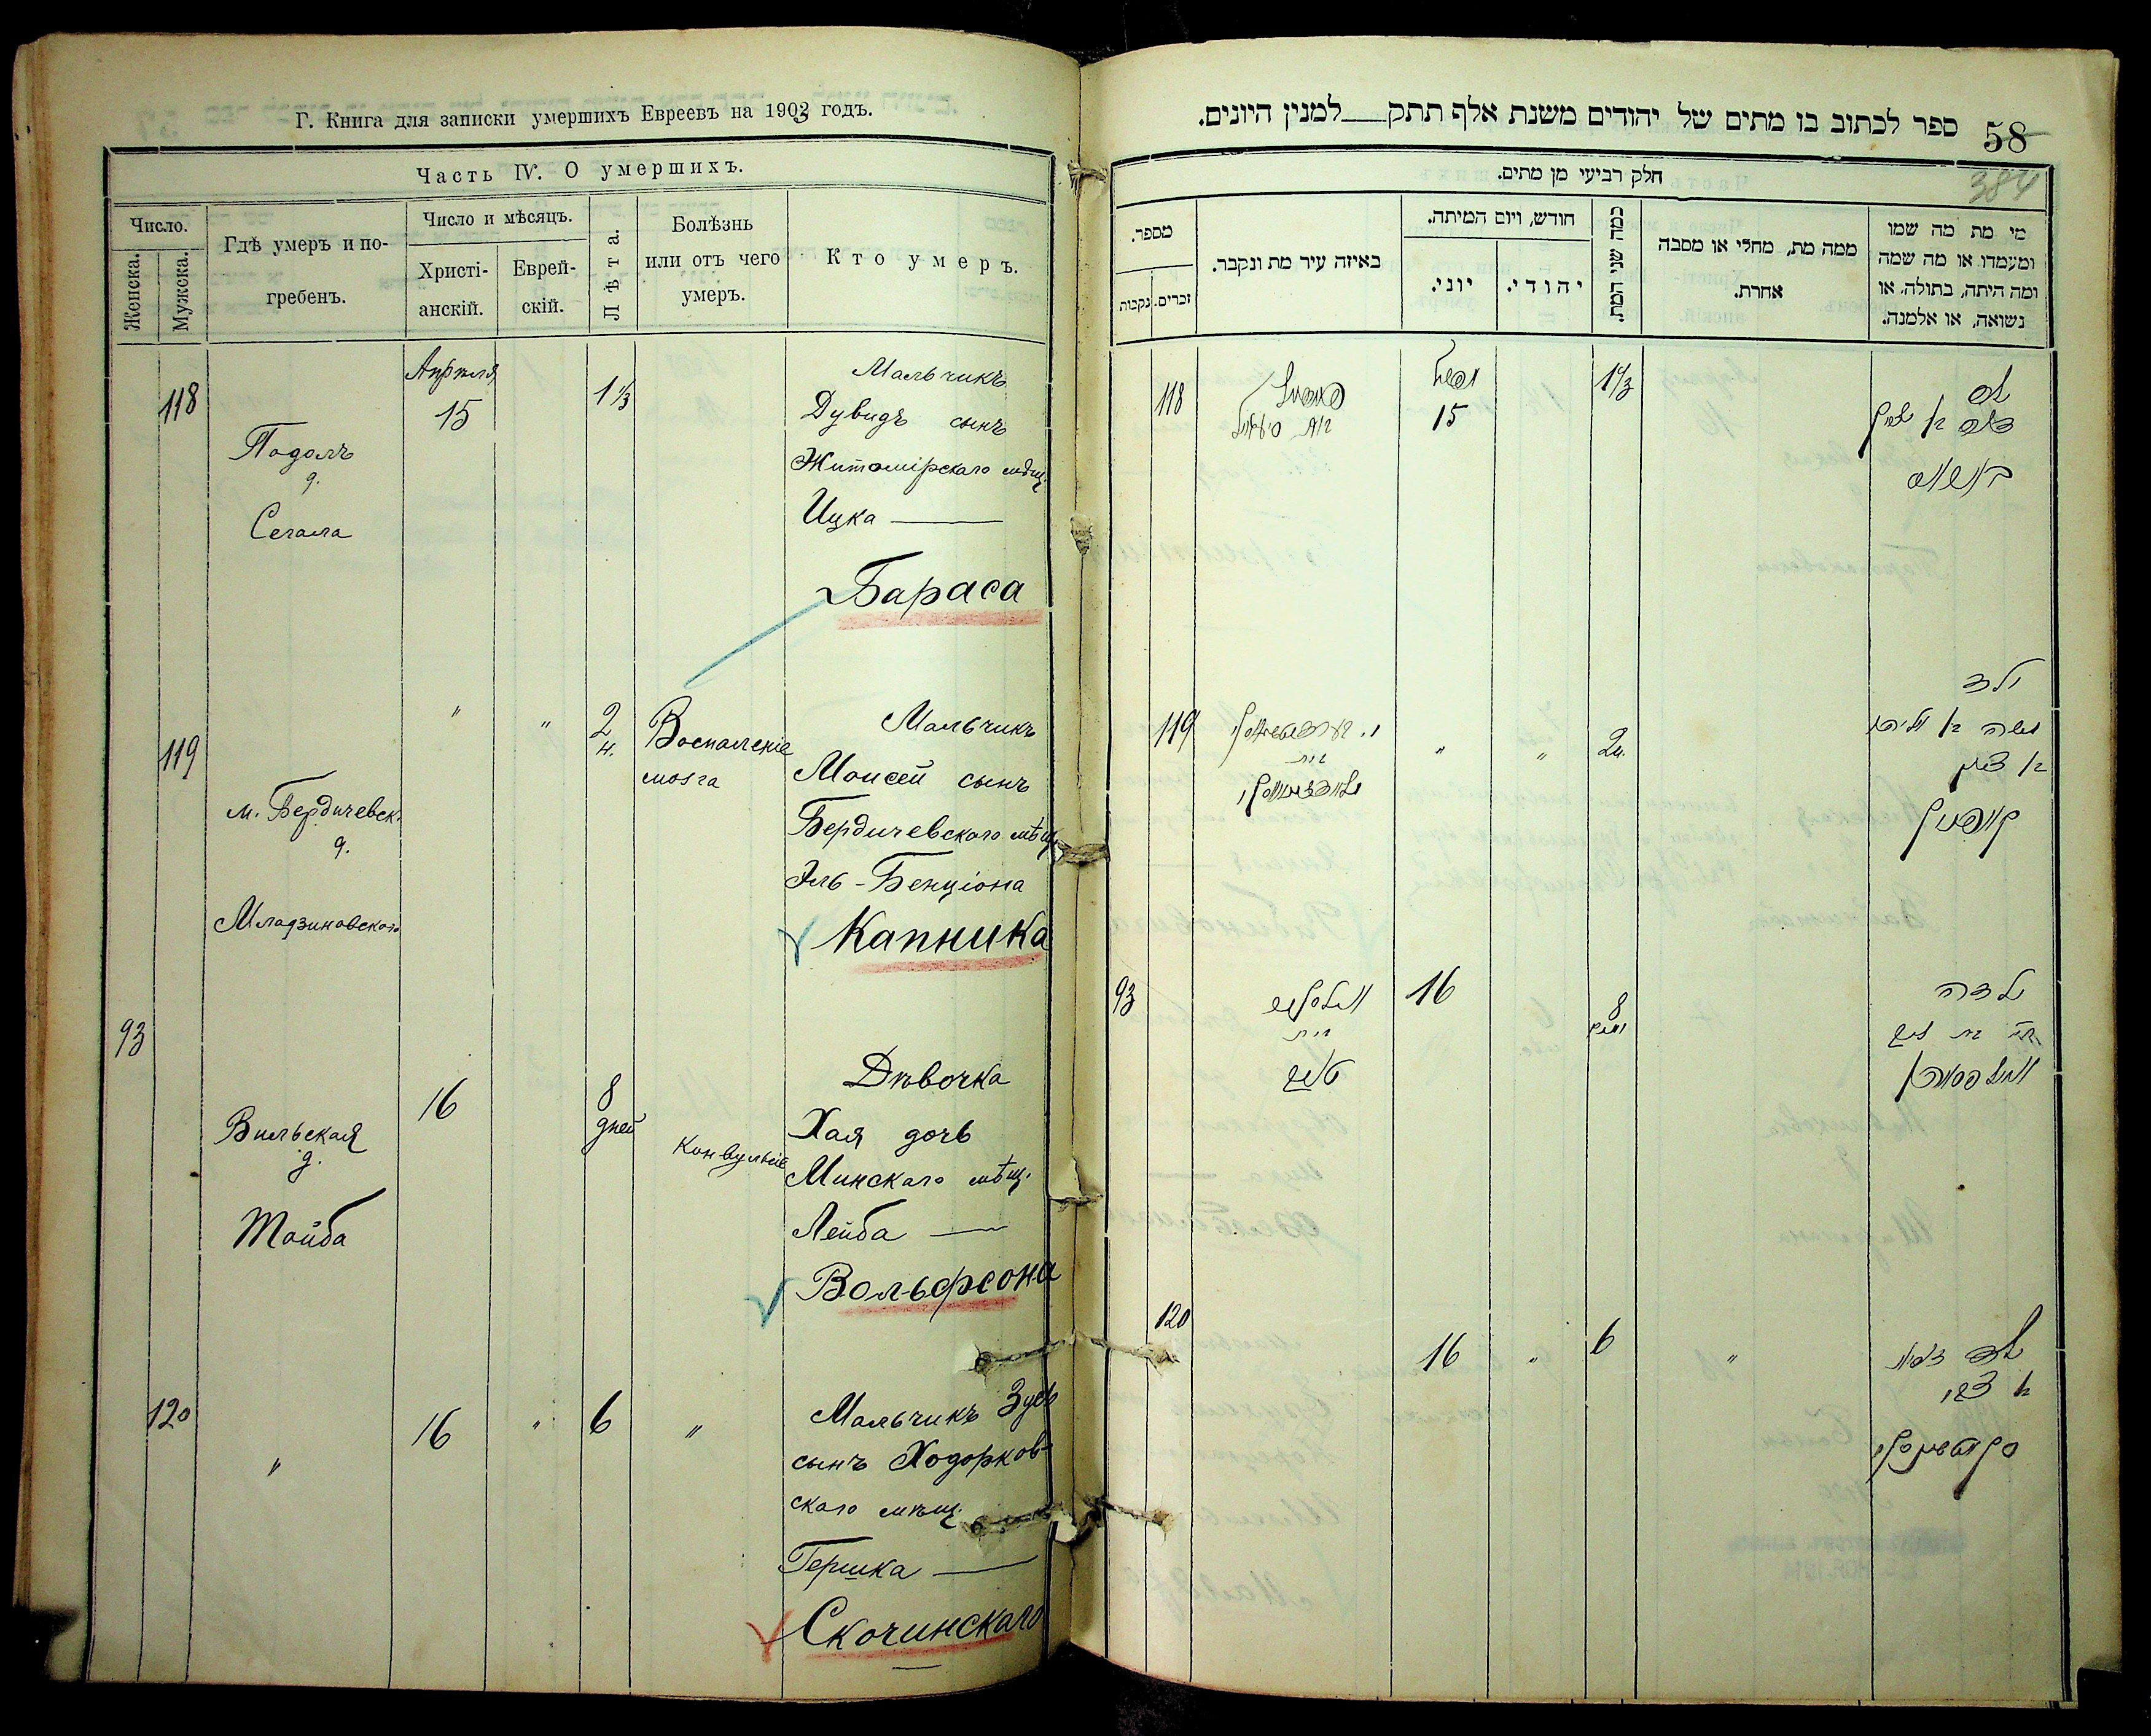 Г. Книга для записки умершихъ Евреевъ на 1903 годъ.
Часть IV. О умершихъ.
Число.
Женска.
Мужска.
Гдѣ умеръ и по-
гребенъ.
Число и мѣсяцъ.
Христі-
анскій.
Еврей-
скій.
Лѣта.
Болѣзнь
или отъ чего
умеръ.
Кто умеръ.
118
Подолъ
д.
Сегала
Апрѣля
15
1 1/3
Мальчикъ
Дувидъ сынъ
Житомірскаго мѣщ.
Ицка —
Бараса
119
м. Бердичевск.
д.
Младзиновскаго
"
"
2
н.
Воспаленіе
мозга
Мальчикъ
Моисей сынъ
Бердичевскаго мѣщ.
Эль-Бенціона
Капника
93
Вильская
д.
Тайба
16
8
дней
Конвульсіе
Дѣвочка
Хая дочь
Минскаго мѣщ.
Лейба —
Вольфсона
120
"
16
"
6
"
Мальчикъ Зусь
сынъ Ходорков-
скаго мѣщ.
Гершка —
Скочинскаго
58
ספר לכתוב בו מתים של יהודים משנת אלף תתק__למנין היונים.
384
חלק רביעי מן מתים.
מספר.
נקבות
זכרים.
באיזה עיר מת ונקבר.
חודש, ויום המיתה.
יוני.
יהודי.
כמה שני המת.
ממה מת, מחלי או מסבה
אחרת.
מי מת מה שמו
ומעמדו או מה שמה
ומה היתה, בתולה, או
נשואה, או אלמנה.
118
בית סיגאל
15
1 1/3
119
בית
"
"
2
ילד
משה בן אליהו
בן ציון
קאפניק
93
בית
טייב
16
8
ילדה
חי' בת ליב
וואלפסאהן
120
16
"
6
"
ילד זוסיא
בן צבי
סקאטשינסקי